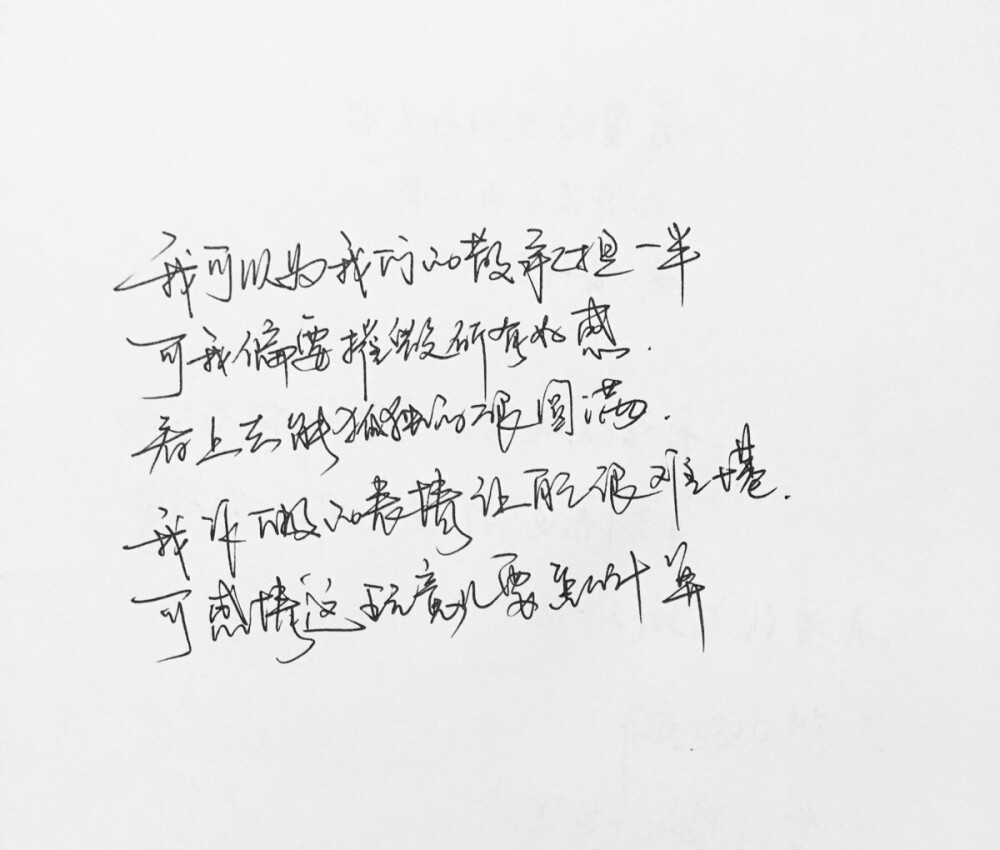 我可以为我们的散承担一半
可我偏要摧毁所有好感.
看上去能孤独的很圆满.
我作的表情让自己很难堪.
可感情这玩意儿要怎计算